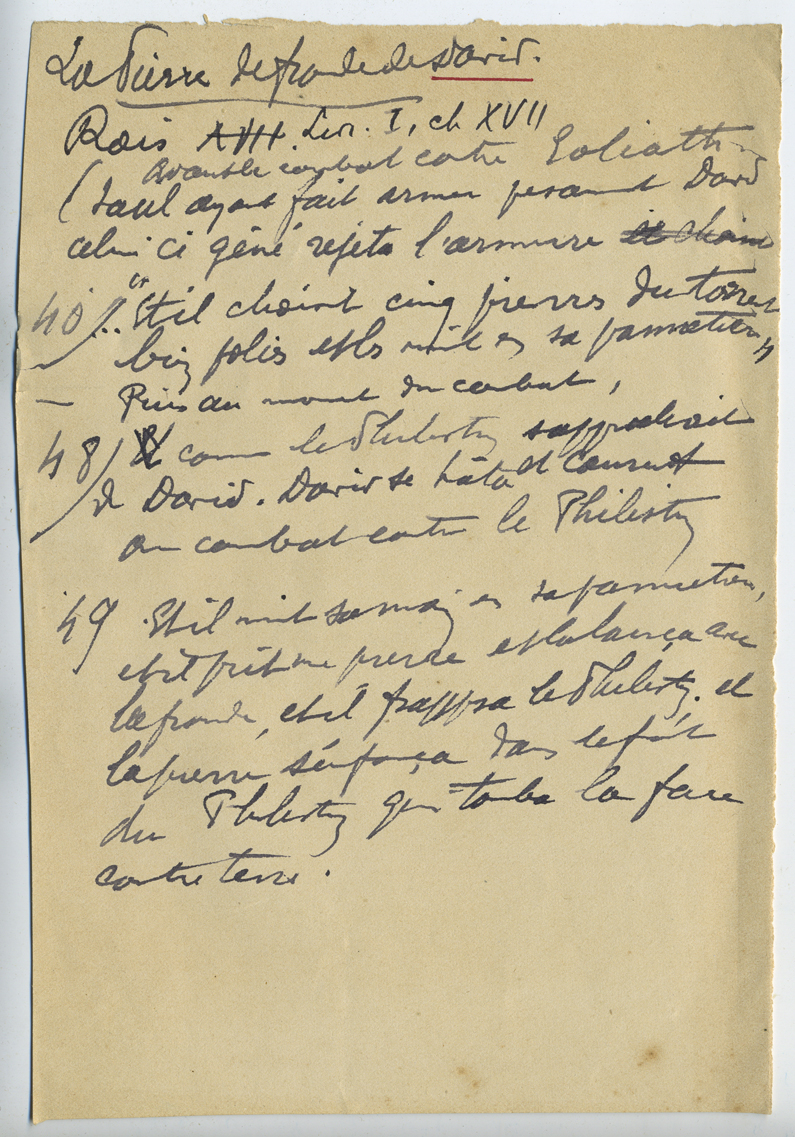 La Pierre de fronde de David.
Rois XVII. Livr. I, ch XVII
Avant le combat contre Goliath
(Saul ayant fait armer pesamment David
celui ci gêné rejeta l'armure et choisit
40/ .. "Et il choisit cinq pierres du torrent
bien polies et les mit en sa pannetière"
Puis au moment du combat,
48/ comme le Philistin s'approchait
de David. David se hâta et courut
au combat contre le Philistin
49 Et il mit sa main en sa pannetière,
et il prit une pierre et la lança avec
la fronde, et il frappa le Philistin. et
la pierre s'enfonça dans le front
du Philistin qui tomba la face
contre terre.